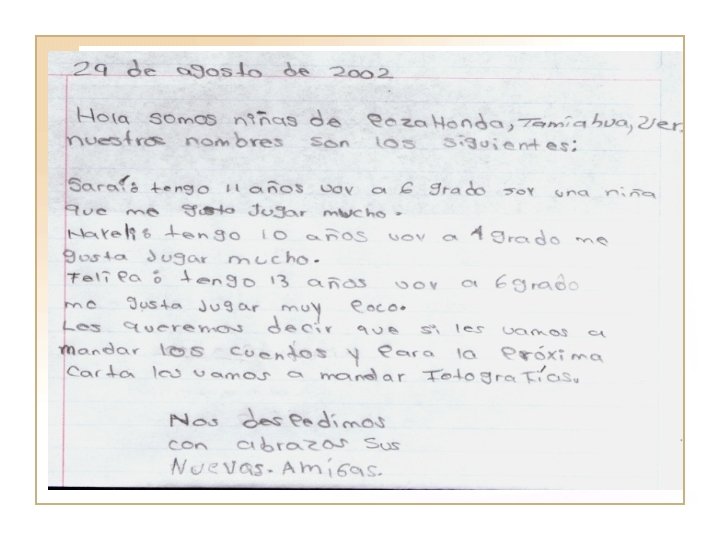 29 de agosto de 2002
Hola somos niñas de Poza Honda, Tamiahua, Ver.
nuestros nombres son los siguientes:
Saraís tengo 11 años voy a 6 grado soy una niña
que me gusta Jugar mucho.
Narelis tengo 10 años voy a 4 grado me
gusta Jugar mucho.
Felipa: tengo 13 años voy a 6 grado
me gusta Jugar muy poco.
Les queremos decir que si les vamos a
mandar los cuentos y para la próxima
Carta les vamos a mandar Fotografías.
Nos despedimos
con abrazos sus
Nuevas. Amigas.